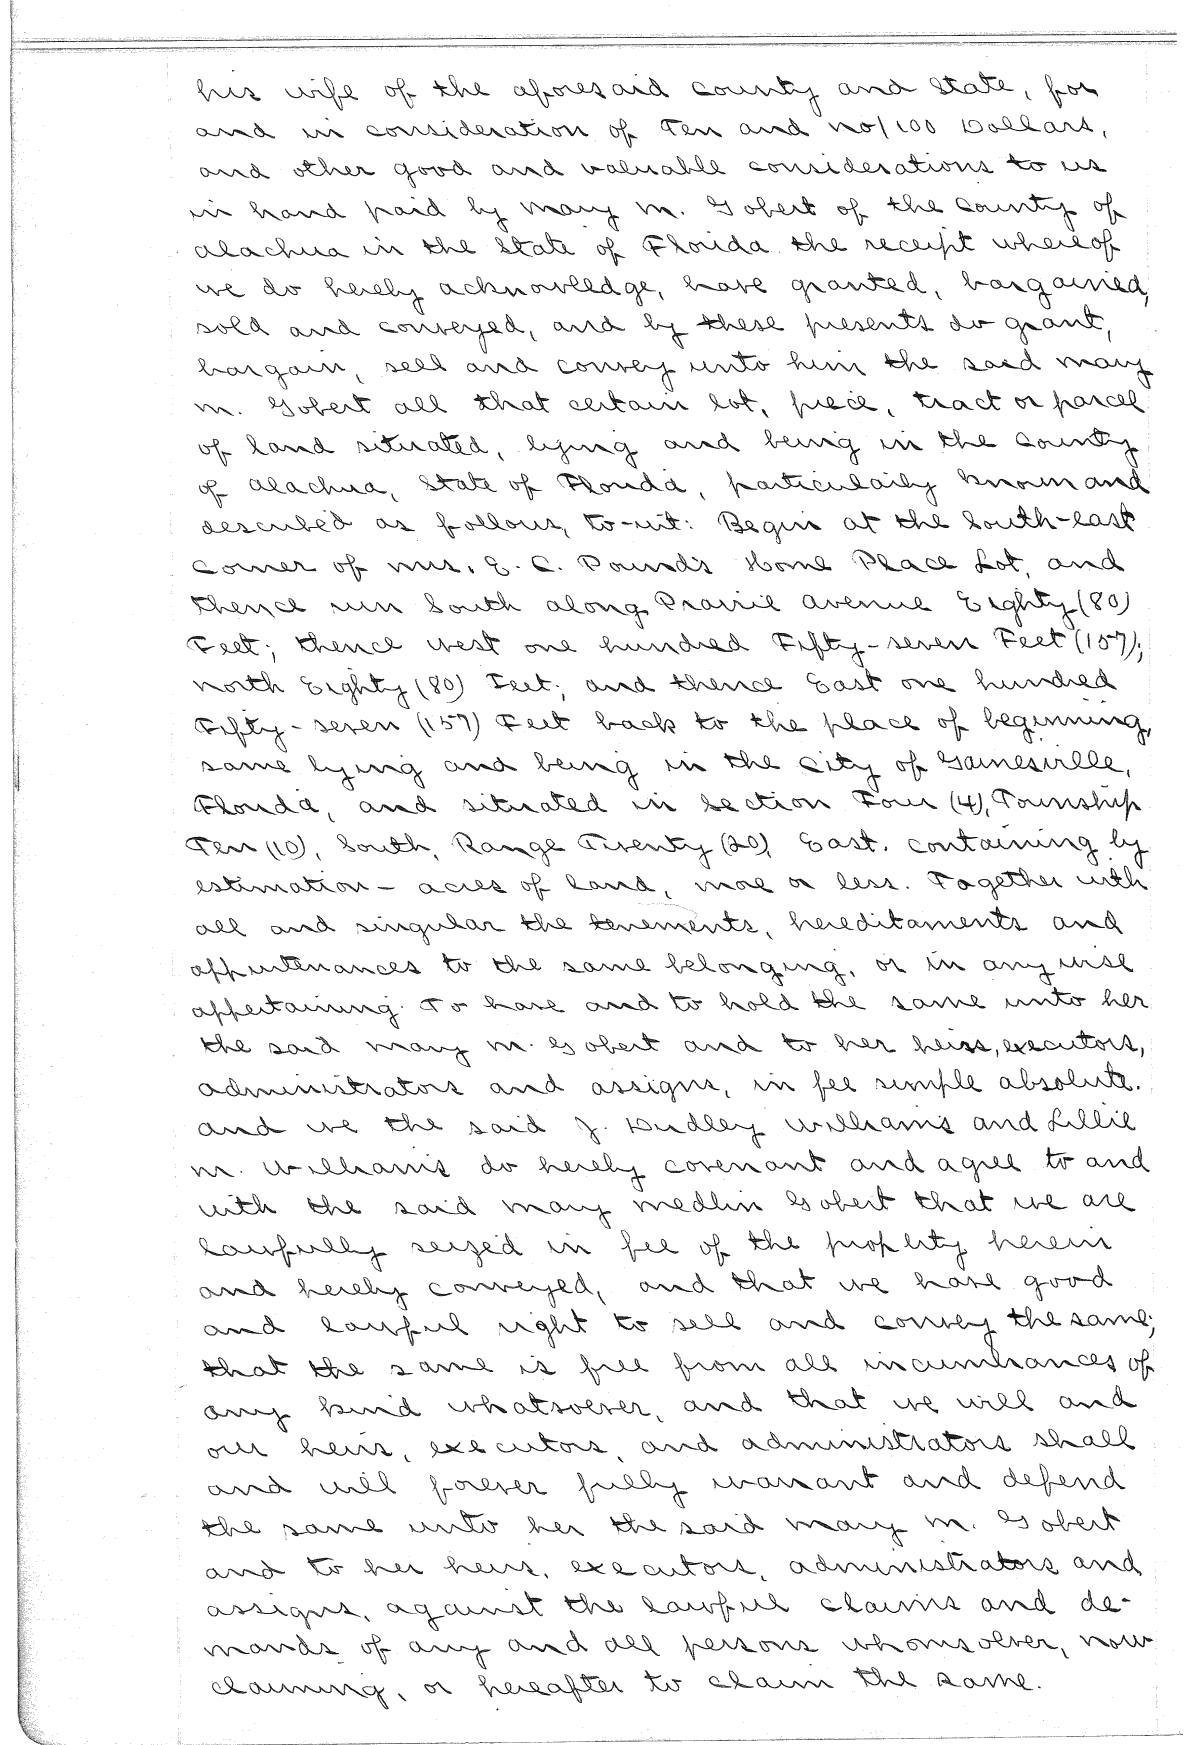 his wife of the aforesaid county and State, for
and in consideration of Ten and no/100 Dollars,
and other good and valuable considerations to us
in hand paid by Mary M. Gobert of the County of
Alachua in the State of Florida the receipt whereof
we do hereby acknowledge, have granted, bargained,
sold and conveyed, and by these presents do grant,
bargain, sell and convey unto him the said Mary
M. Gobert all that certain lot, piece, tract or parcel
of land situated, lying and being in the County
of Alachua, State of Florida, particularly known and
described as follows, to-wit: Begin at the South-east
corner of Mrs. E. C. Pound's Home Place Lot, and
thence run South along Prairie Avenue Eighty (80)
Feet; thence west one hundred Fifty-seven Feet (157);
north Eighty (80) Feet; and thence East one hundred
Fifty-seven (157) Feet back to the place of beginning,
same lying and being in the City of Gainesville,
Florida, and situated in Section Four (4), Township
Ten (10), South, Range Twenty (20), East. containing by
estimation - acres of land, more or less. Together with
all and singular the tenements, hereditaments and
appurtenances to the same belonging, or in any wise
appertaining. To have and to hold the same unto her
the said Mary M. Gobert and to her heirs, executors,
administrators and assigns, in fee simple absolute.
and we the said J. Dudley Williams and Lillie
M. Williams do hereby covenant and agree to and
with the said Mary Medlin Gobert that we are
lawfully seized in fee of the property herein
and hereby conveyed, and that we have good
and lawful right to sell and convey the same;
that the same is free from all incumbrances of
any kind whatsoever, and that we will and
our heirs, executors, and administrators shall
and will forever fully warrant and defend
the same unto her the said Mary M. Gobert
and to her heirs, executors, administrators and
assigns, against the lawful claims and de-
mands of any and all persons whomsoever, now
claiming, or hereafter to claim the same.